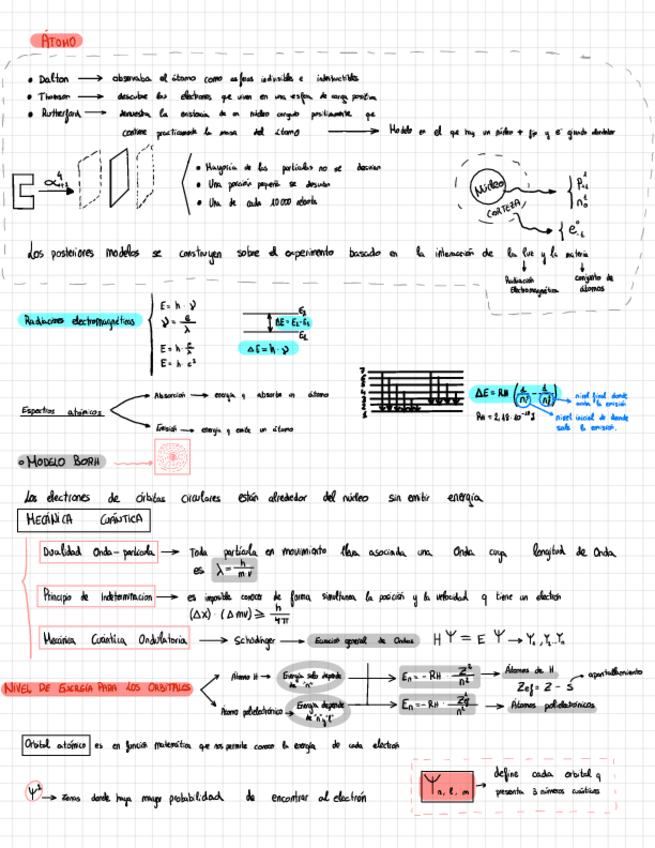 ÁTOMO
• Dalton → observaba el átomo como esferas indivisibles e indestructibles
• Thomson → descubre los electrones que viven en una esfera de carga positiva
• Rutherford → demuestra la existencia de un núcleo cargado positivamente que
contiene practicamente la masa del átomo → Modelo en el que hay un núcleo + fijo y e⁻ girando alrededor
• Mayoría de las partículas no se desvían
• Una porción pequeña se desvían
• Una de cada 10 000 rebota
Núcleo
CORTEZA
Los posteriores modelos se construyen sobre el experimento basado en la interacción de la luz y la materia
Radiación Electromagnética
conjunto de átomos
Radiaciones electromagnéticas
E = h · ν
ν = c/λ
E = h · c/λ
E₂
ΔE = E₂ - E₁
E₁
ΔE = h · ν
Espectros atómicos
Absorción → energía q absorbe un átomo
Emisión → energía q emite un átomo
nivel final donde
nivel inicial de donde
sale la emisión.
• MODELO BORH
Los electrones de órbitas circulares están alrededor del núcleo sin emitir energía
MECÁNICA CUÁNTICA
Dualidad Onda-partícula → Toda partícula en movimiento lleva asociada una Onda cuya longitud de Onda
es λ = h/m·v
Principio de Indeterminación → es imposible conocer de forma simultánea la posición y la velocidad q tiene un electrón
(Δx) · (Δmv) ≥ h/4π
Mecánica Cuántica Ondulatoria → Schödinger → Ecuación general de Ondas HΨ = EΨ →
NIVEL DE ENERGÍA PARA LOS ORBITALES
Átomo H → Energía solo depende de "n" → En = - RH · Z²/n² → Átomos de H
Zef = Z - S → apantallamiento
Átomo polielectrónico → Energía depende de "n" y "l" → Átomos polielectrónicos
Orbital atómico es en función matemática que nos permite conocer la energía de cada electrón
Ψ² → Zonas donde haya mayor probabilidad de encontrar al electrón
Ψ n, l, m → define cada orbital q
presenta 3 números cuánticos